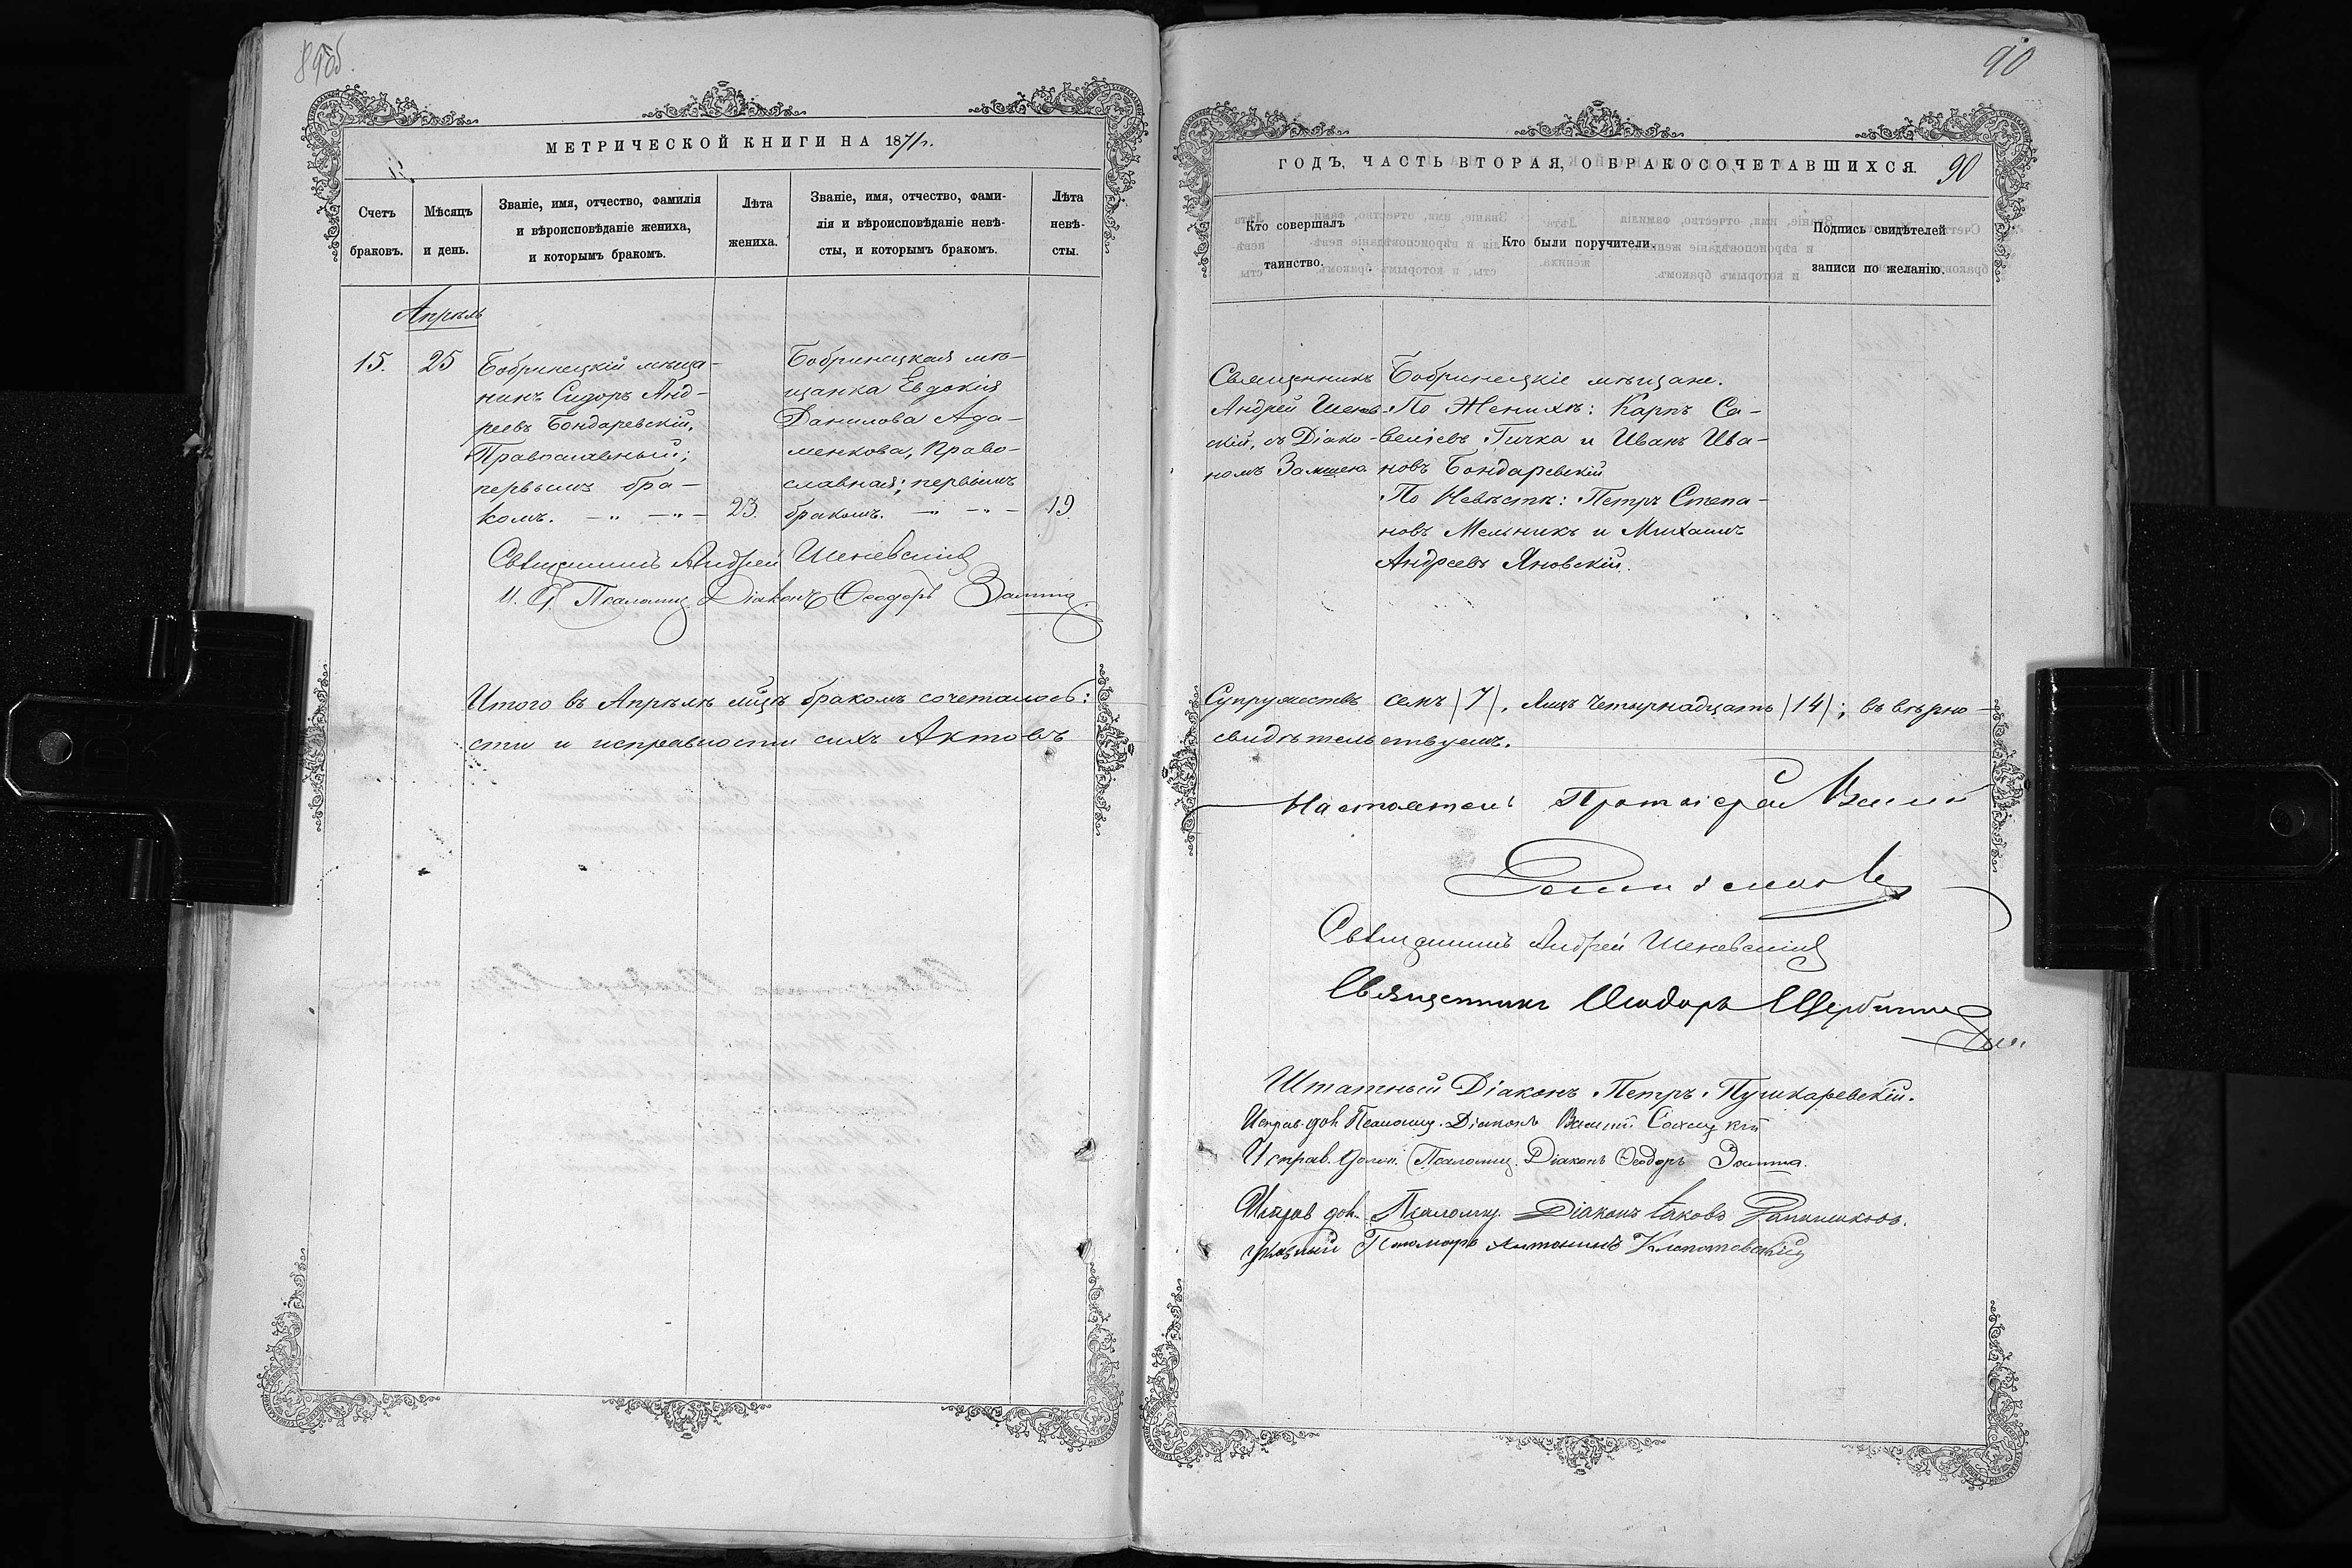 89об.
МЕТРИЧЕСКОЙ КНИГИ НА 1871 г.
Счетъ браковъ.
Мѣсяцъ и день.
Званіе, имя, отчество, фамилія
и вѣроисповѣданіе жениха,
и которымъ бракомъ.
Лѣта
жениха.
Званіе, имя, отчество, фами-
лія и вѣроисповѣданіе невѣ-
сты, и которымъ бракомъ.
Лѣта
невѣ-
сты.
Апрѣль
15.
25
Бобринецкій мѣща-
нинъ Сидоръ Анд-
реевъ Бондаревскій,
Православный;
первымъ бра-
комъ.
23.
Бобринецкая мѣ-
щанка Евдокія
Данилова Ада-
менкова, Право-
славная; первымъ
бракомъ.
19.
Священникъ Андрей Шеневскій
И. д. Псаломщ. Діаконъ Ѳеодоръ
Итого въ Апрѣлѣ мѣсяцѣ бракомъ сочеталось:
сти и исправности сихъ Актовъ
90
ГОДЪ, ЧАСТЬ ВТОРАЯ, О БРАКОСОЧЕТАВШИХСЯ.
90
Кто совершалъ
таинство.
Кто были поручители.
Подпись свидѣтелей
записи по желанію.
Священникъ
Андрей Шенев-
скій, съ Діако-
номъ
Бобринецкіе мѣщане.
По Женихѣ: Карпъ Са-
веліевъ Гичка и Иванъ Ива-
новъ Бондаревскій
По Невѣстѣ: Петръ Степа-
новъ Мельникъ и Михаилъ
Андреевъ Яновскій.
Супружествъ семь (7), лицъ четырнадцать (14); въ вѣрно-
свидѣтельствуемъ.
Настоятель Протоіерей
Священникъ Андрей Шеневскій
Священникъ Ѳеодоръ Щербина
Штатный Діаконъ Петръ Пушкаревскій.
Исправ. дол. Псаломщ. Діаконъ Василій
Исправ. Долж. Псаломщ. Діаконъ Ѳеодоръ
Исправ. дол. Псаломщ. Діаконъ Іаковъ
Пономарь Антонинъ Клопотовскій